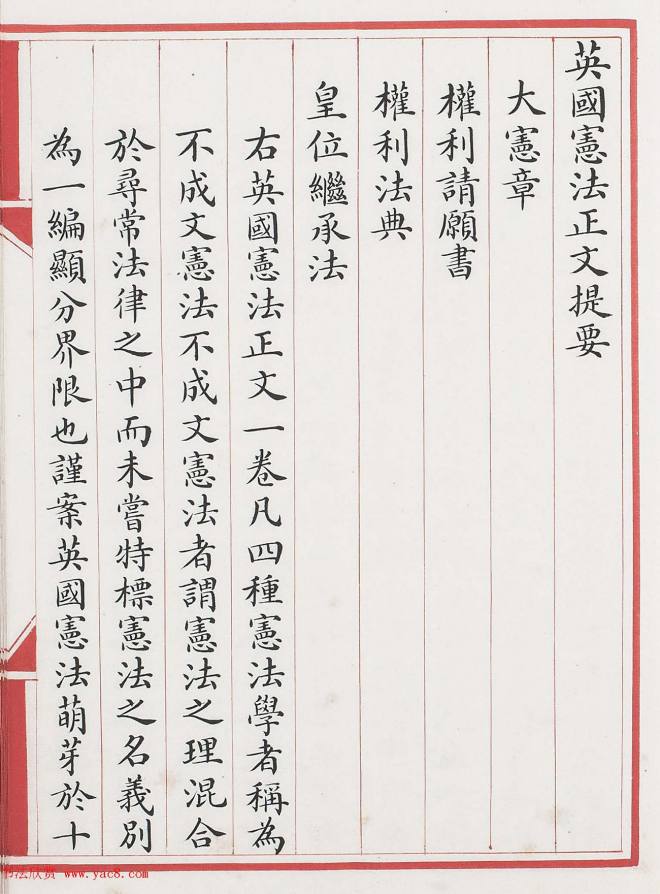 英國憲法正文提要
大憲章
權利請願書
權利法典
皇位繼承法
右英國憲法正文一卷凡四種憲法學者稱為
不成文憲法不成文憲法者謂憲法之理混合
於尋常法律之中而未嘗特標憲法之名義別
為一編顯分界限也謹案英國憲法萌芽於十
书法欣赏 www.yac8.com